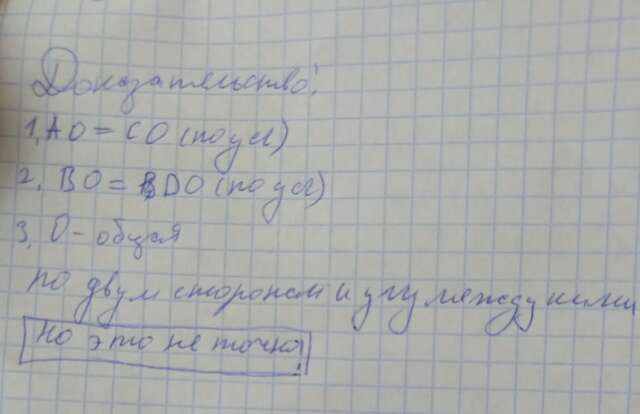 Доказательство:
1, AO = CO (по усл)
2, BO = DO (по усл)
3, O - общая
по двум сторонам и углу между ними
Но это не точно!